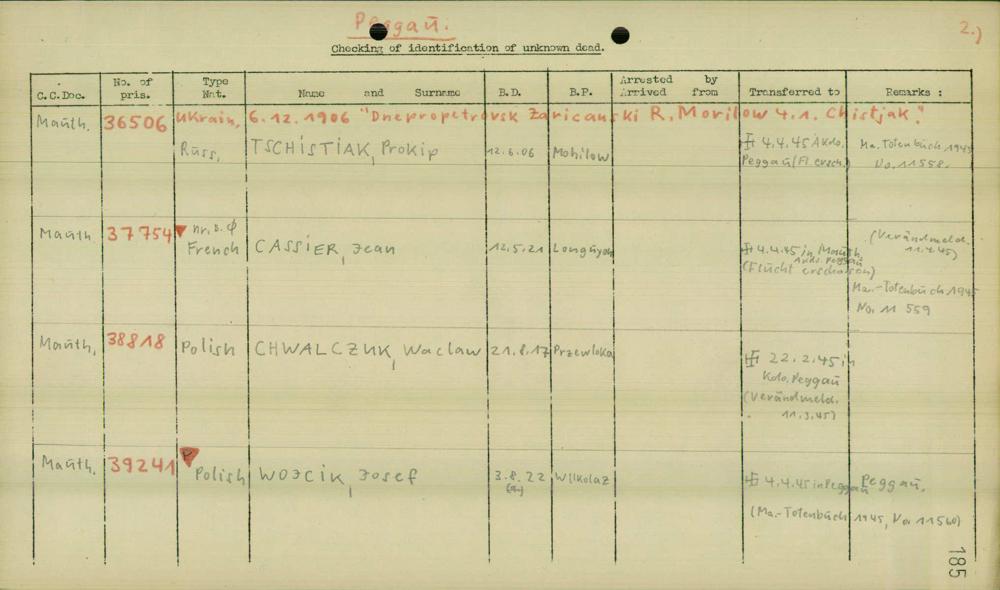 Peggaŭ.
2.)
Checking of identification of unknown dead.
C.C.Doc. No. of pris. Type Nat. Name and Surname B.D. B.P. Arrested by Arrived from Transferred to Remarks :
Maŭth. 36506 Ukrain, 6.12.1906 "Dnepropetrovsk Zaricanski R. Morilow 4.1. Chistjak".
Rŭss, TSCHISTIAK, Prokip 12.6.06 Mohilow 卐 4.4.45 A.Kdo. Peggaŭ (Fl ersch.) Ma. Totenbŭch 1945 No. 11558.
Maŭth 37754 nr. B. φ
French CASSIER, Jean 12.5.21 Longŭyon 4.4.45 in Maŭth. A.Kdo. Peggaŭ (Flŭcht erschossen) (Verändmeld. 11.4.45)
Ma.-Totenbŭch 1945
No. 11 559
Maŭth, 38818 Polish CHWALCZUK, Waclaw 21.8.17 Przewloka 22.2.45 in
Kdo. Peggaŭ
(Verändmeld.
11.3.45)
Maŭth. 39241 P
Polish WOJCIK, Josef 3.8.22 Wilkolaz 4.4.45 in Peggaŭ Peggaŭ.
(Ma.-Totenbŭch 1945, No. 11560)
185